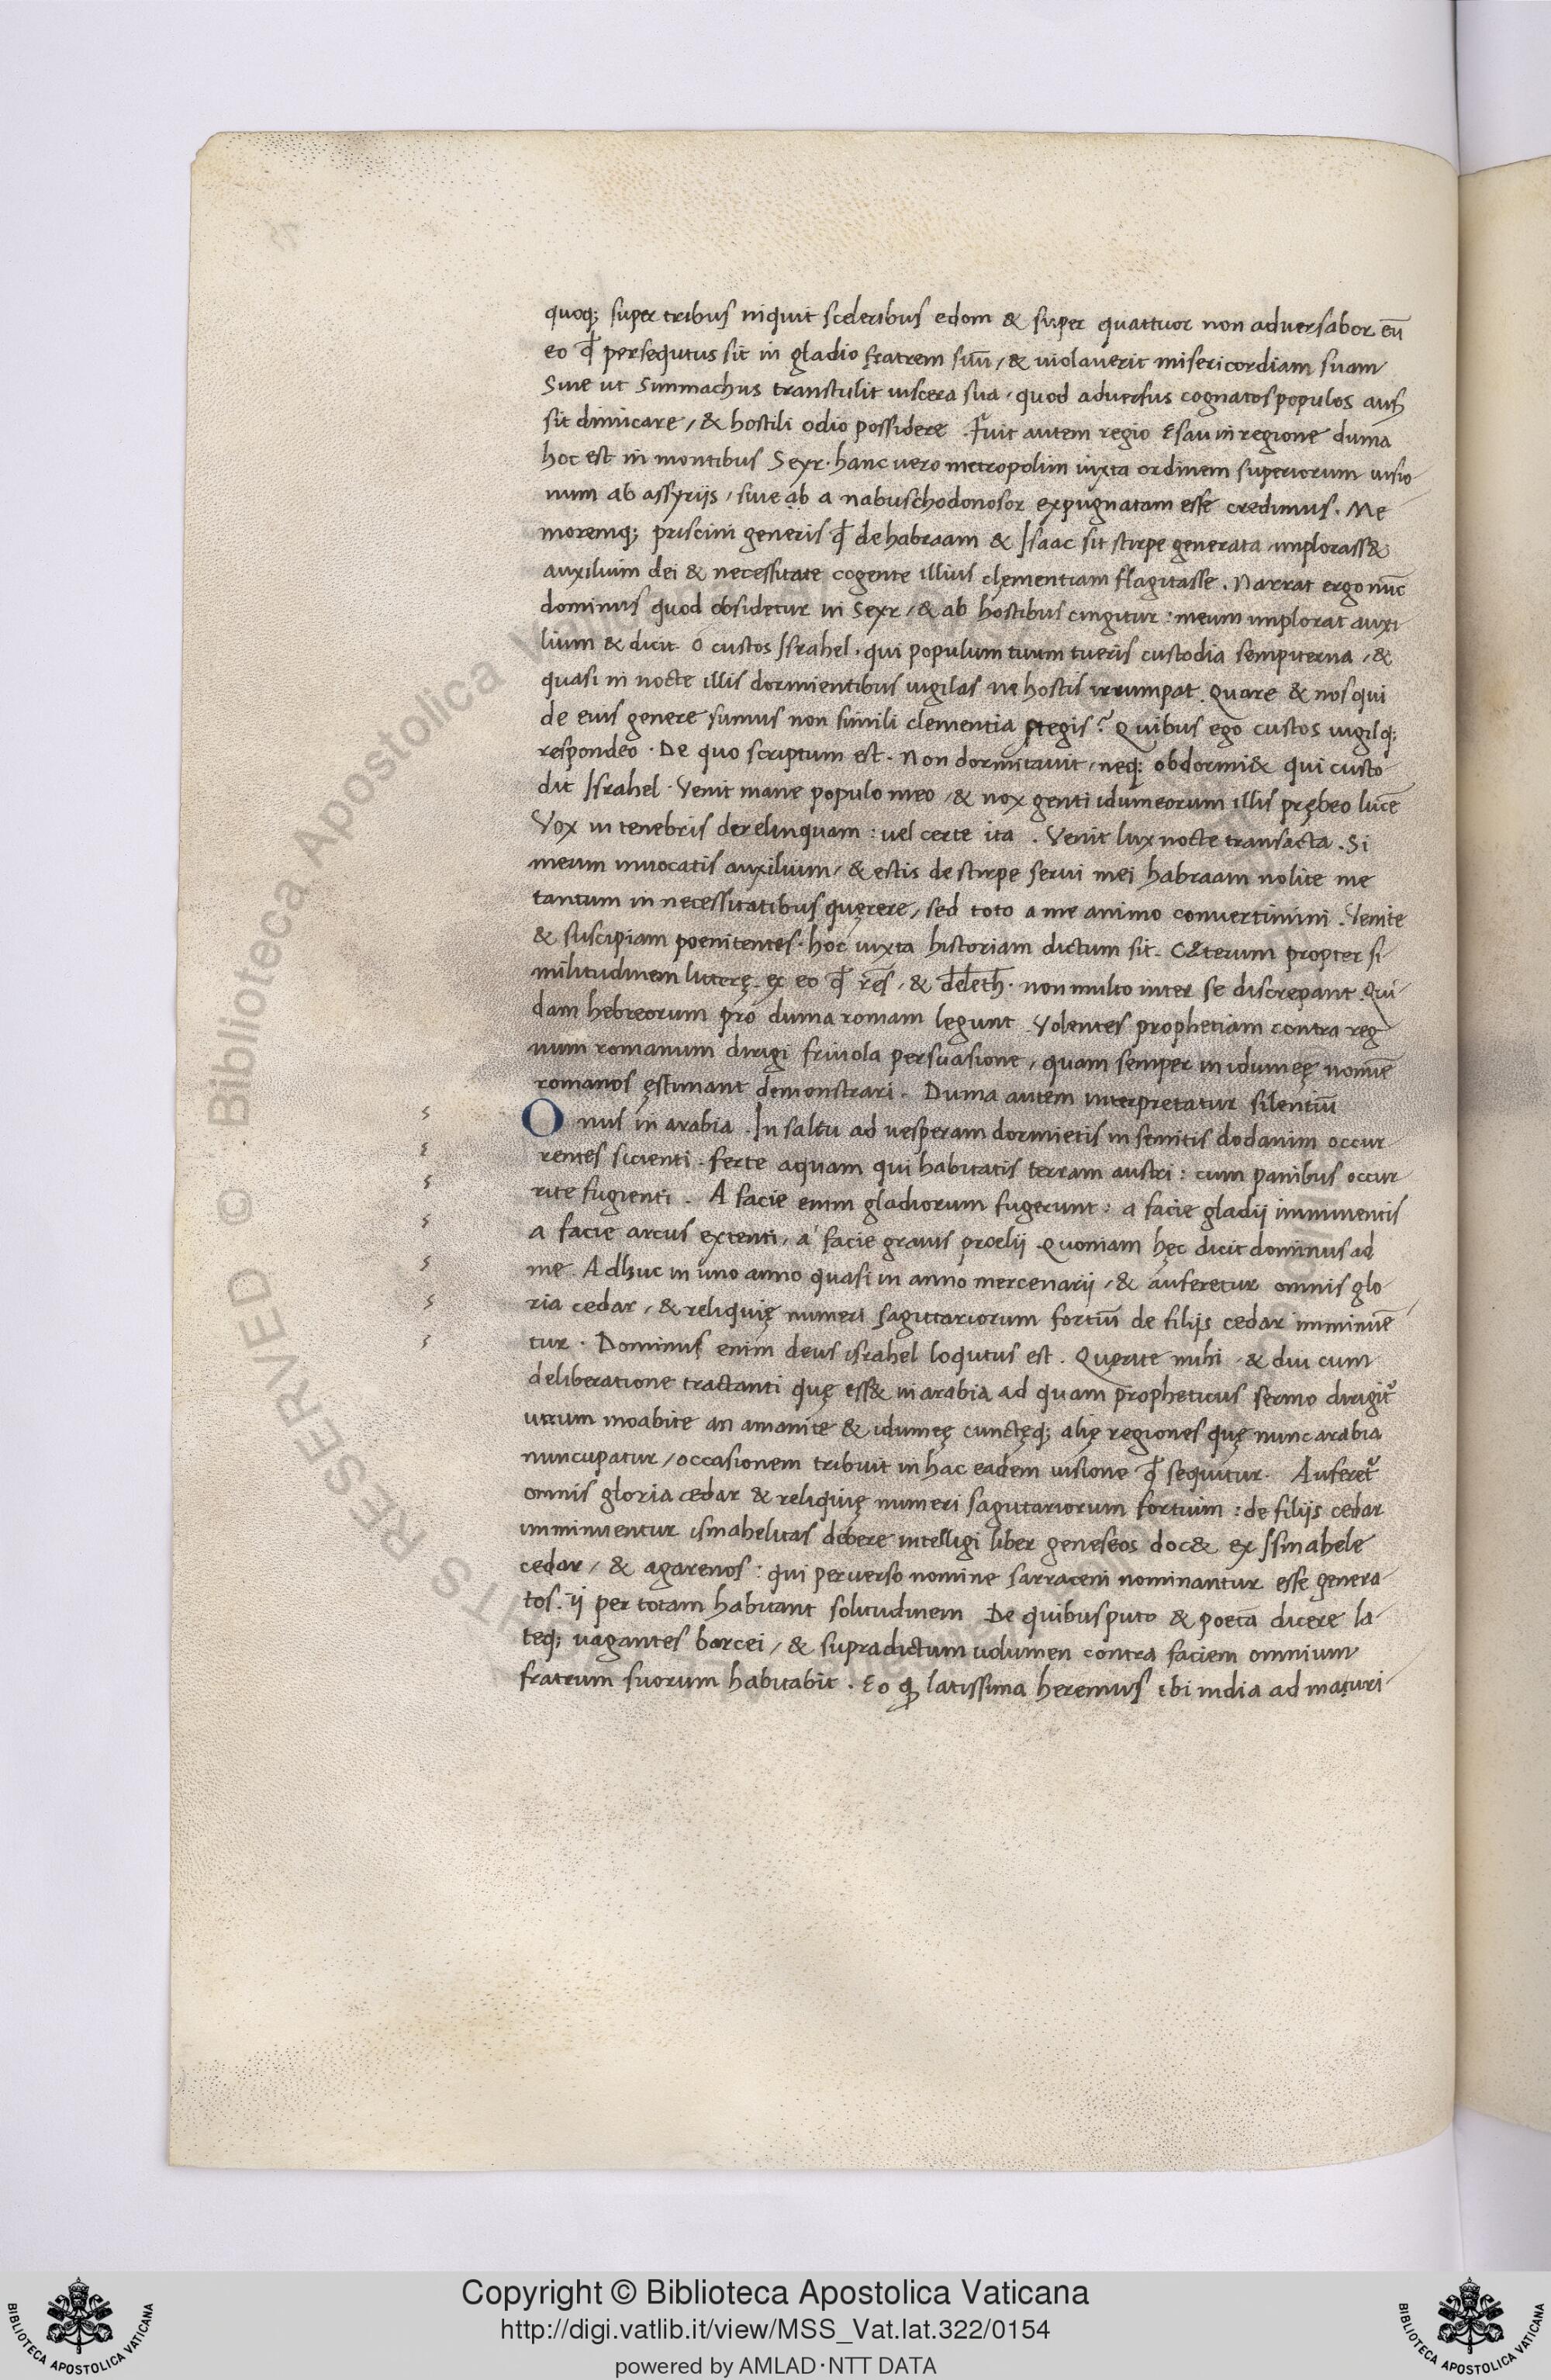 quoq; super tribus inquit sceleribus edom & super quattuor non adversabor eū
eo ꝙ persequtus sit in gladio fratrem suū, & violaverit misericordiam suam
Sive ut Simmachus transtulit viscera sua, quod adversus cognatos populos aus
sit dimicare, & hostili odio possidere. Fuit autem regio Esau in regione duma
hoc est in montibus Seyr. hanc vero metropolim iuxta ordinem superiorum visio
num ab assyriis, sive ab a nabuschodonosor expugnatam esse credimus. Me
moremq; priscini generis ꝙ de habraam & Isaac sit stirpe generata implorass&
auxilium dei & necessitate cogente illius clęmentiam flagitasse. Narrat ergo nūc
dominus quod obsidetur in Seyr, & ab hostibus cingitur: meum implorat auxi
lium & dicit. O custos Israhel. qui populum tuum tueris custodia sempiterna, &
quasi in nocte illis dormientibus vigilas ne hostis irrumpat. Quare & nos qui
de eius genere sumus non simili clementia ptegis? Quibus ego custos vigilq;
respondeo. De quo scriptum est. Non dormitavit, neq; obdormi& qui custo
dit Israhel. Venit mane populo meo, & nox genti idumeorum illis prębeo lucē
Vox in tenebris derelinquam: vel certe ita. Venit lux nocte transacta. Si
meum invocatis auxilium, & estis de stirpe servi mei habraam nolite me
tantum in necessitatibus quęrere, sed toto a me animo convertimini. Venite
& suscipiam poenitentes. hoc iuxta historiam dictum sit. C&terum propter si
militudinem litterę. ex eo ꝙ rēs, & deleth. non multo inter se discrepant. Qui
dam hebreorum pro duma romam legunt. Volentes prophetiam contra reg
num romanum dirigi frivola persuasione, quam semper in idumeę nomīe
romanos ęstimant demonstrari. Duma autem interpretatur silentiū
Onus in arabia. In saltu ad vesperam dormietis in semitis dodanim occur
rentes sicienti. ferte aquam qui habitatis terram austri: cum panibus occur
rite fugienti. A facie enim gladiorum fugerunt: a facie gladii imminentis
a facie arcus extenti, a facie gravis proelii. Quoniam hęc dicit dominus ad
me. Adhuc in uno anno quasi in anno mercenarii, & auferetur omnis glo
ria cedar, & reliquię numeri sagittariorum fortiū de filiis cedar imminuē
tur. Dominus enim deus israhel loqutus est. Quęrite mihi, & diu cum
deliberatione tractanti quę ess& in arabia ad quam propheticus sermo dirigit᷒
utrum moabite an amanite & idumeę cunctęq; alię regiones quę nunc arabia
nuncupatur, occasionem tribuit in hac eadem visione ꝙ sequitur. Auferet᷒
omnis gloria cedar & reliquię numeri sagittariorum fortium: de filiis cedar
imminuentur ismahelitas debere intelligi liber geneseos doc& ex Ismahele
cedar, & agarenos: qui perverso nomine sarraceni nominantur esse genera
tos. ii per totam habitant solitudinem De quibus puto & poeta dicere la
teq; vagantes barcei, & supradictum volumen contra faciem omnium
fratrum suorum habitabit. Eo ꝙ latissima heremus ibi india ad mauri
Copyright © Biblioteca Apostolica Vaticana
http://digi.vatlib.it/view/MSS_Vat.lat.322/0154
powered by AMLAD·NTT DATA